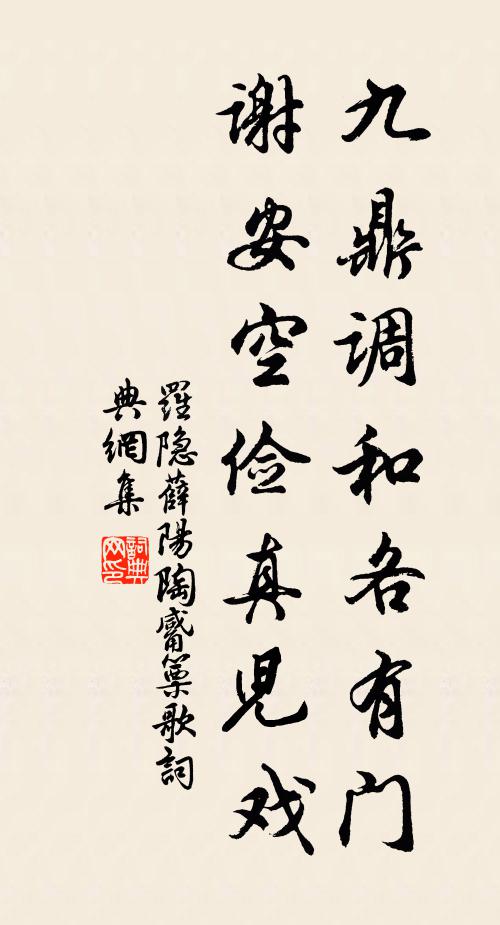 九鼎调和各有门
谢安空俭真児戏
羅隐薛陽陶觱篥歌詞
典網集
詞典
网印